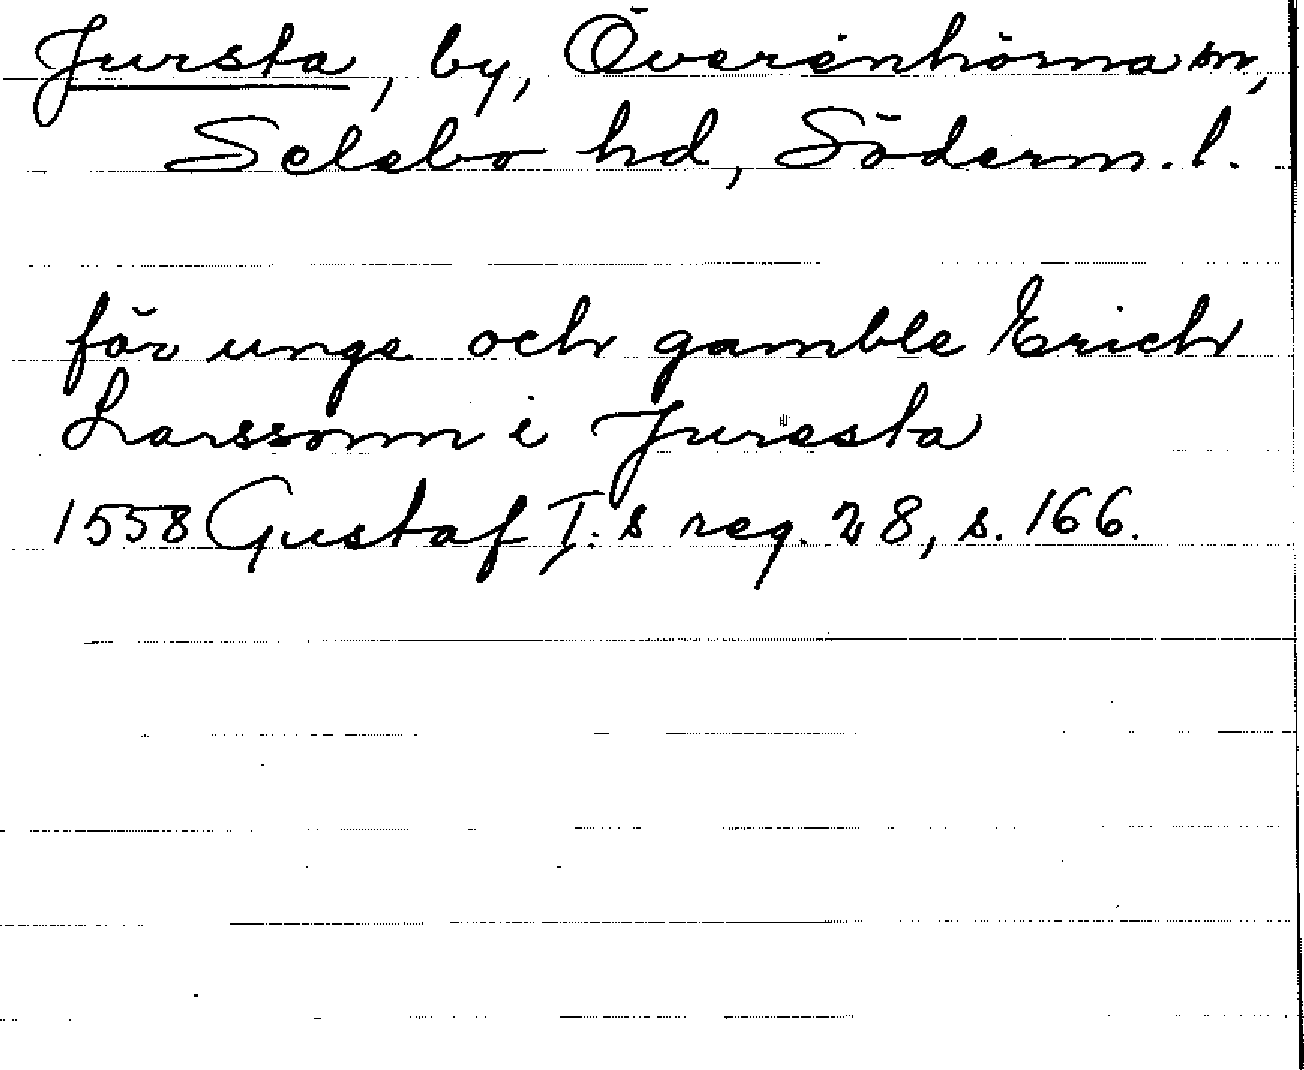 Jursta, by, Överenhörna sn,
Selebo hd, Söderm. l.
för unge och gamble Erich
Larssonn i Juresta
1558 Gustaf I:s reg. 28, s. 166.